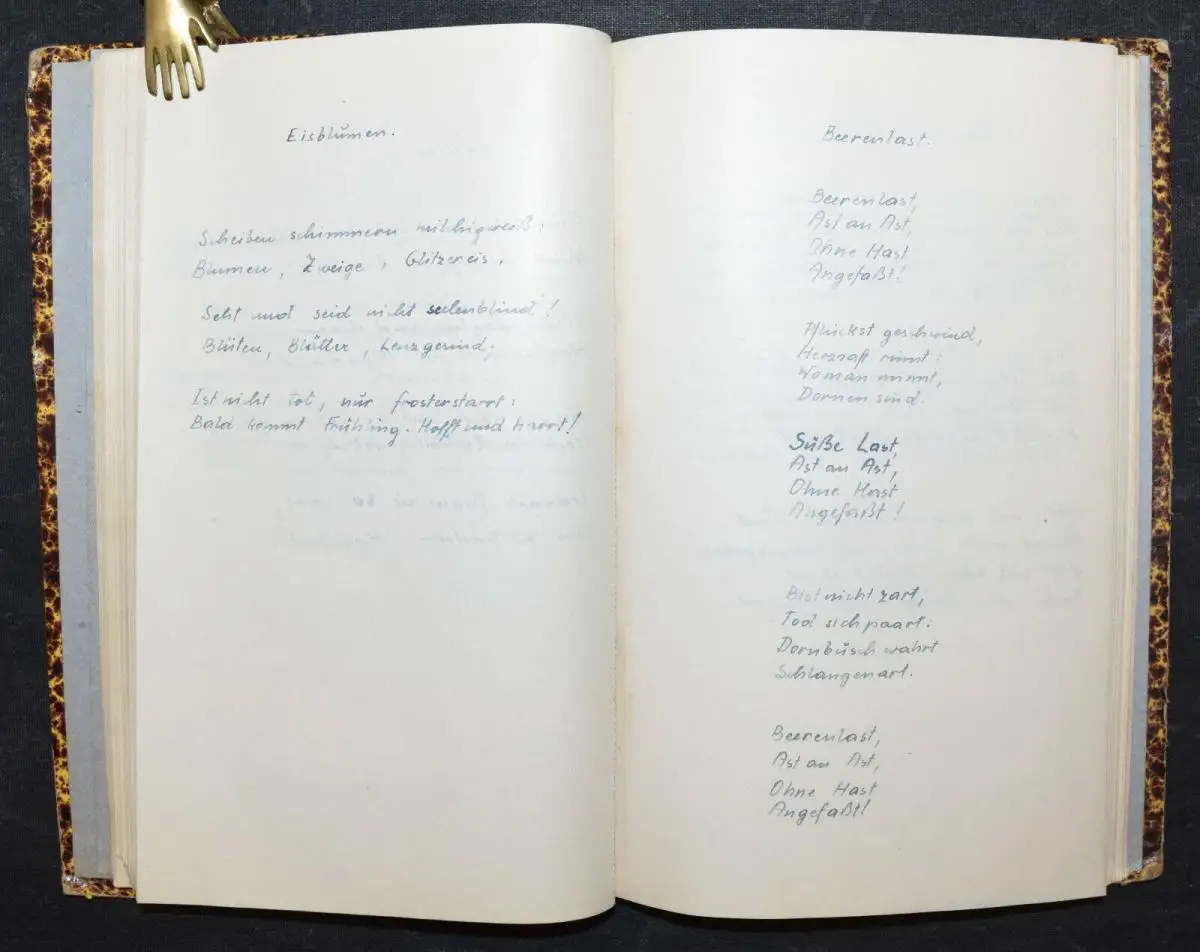 Eisblumen.
Scheiben schimmern milchigweiß:
Blumen, Zweige, Glitzereis.
Seht und seid nicht seelenblind!
Blüten, Blätter, Lenzgesind,
Ist nicht tot, nur frosterstarrt:
Bald kommt Frühling. Hofft und harrt!
Beerenlast.
Beerenlast,
Ast an Ast,
Ohne Hast
Angefaßt!
Pflückst geschwind,
Herzsaft rinnt:
Wo man nimmt,
Dornen sind.
Süße Last,
Ast an Ast,
Ohne Hast
Angefaßt!
Bist nicht zart,
Tod sich paart:
Dornbusch wahrt
Schlangenart.
Beerenlast,
Ast an Ast,
Ohne Hast
Angefaßt!